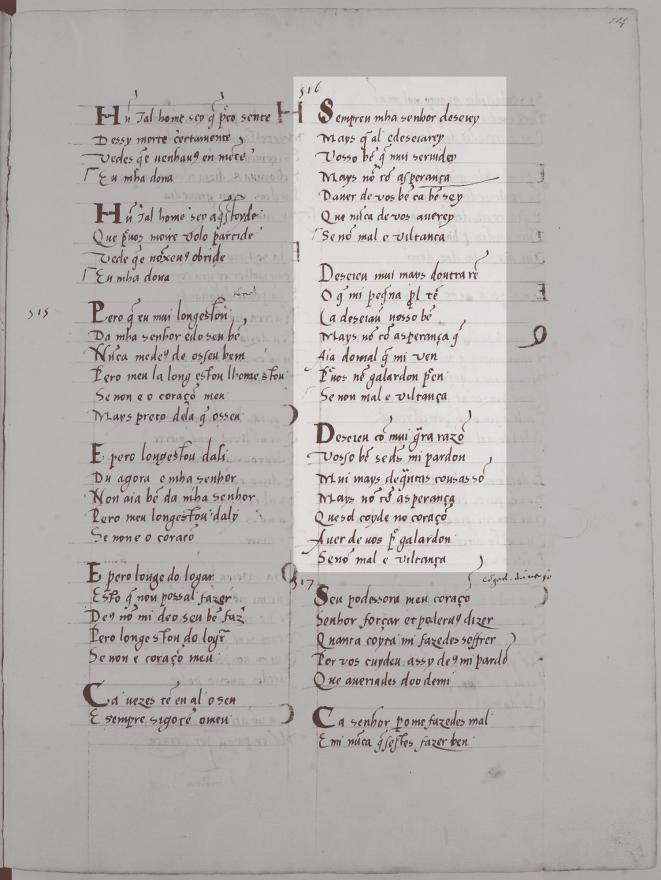 114
Hũ tal home sey q̃ p̃to sente
Dessy morte c̃ertamente
Vedes q̃e venhauꝰ en mẽte
Eu mha dona
Hũ tal home sey
Que p̃uos moire volo partide
Vede q̃e nõxeuꝰ obride
Eu mha dona
515
Pero q̃ eu mui long estou
Da mha senhor e do seu bẽ
Nũca me deꝰ de o sseu bem
Pero meu la long estou lhome stou
Se non e o coraçõ meu
Mays preto dela q̃ osseu
E pero long estou dali
Du agora e mha senhor
Non aia bẽ da mha senhor
Pero meu long estou daly
Se non e o coraco
E pero longe do logar
Esto q̃ nou possal fazer
Deꝰ nõ mi de o seu bẽ faz
Pero long estou do logr̃
Se non e coraçõ meu
Ca uezes tẽ en al o sen
E sempre sigo tẽ o meu
516
Sempreu mha senhor deseiey
Mays q̃ al e deseiarey
Vosso bẽ q̃ mui seruidey
Mays nõ cõ asperança
Dauer de vos bẽ ca bẽ sey
Que nũca de vos auerey
Se nõ mal e viltança
Deseieu mui mays doutra rẽ
O q̃ mi peq̃na pl̃ tẽ
Ca deseiau uosso bẽ
Mays nõ cõ asperança q̃
Aia do mal q̃ mi ven
P̃ uos nẽ galardon p̃ en
Se non mal e viltança
Deseieu cõ mui g̃ra razõ
Vosso bẽ se dꝰ mi pardon
Mui mays de q̃ntas cousas sõ
Mays nõ cõ asperança
Quesol coyde no coraçõ
Auer de vos p̃ galardon
Se nõ mal e viltança
517
Seu podessora meu coraço
Senhor forçar et poleruꝰ dizer
Quanta coyta mi fazedes soffrer
Por vos cuydeu assy deꝰ mi pardõ
Que aueriades doo de mi
Ca senhor p̃o me fazedes mal
E mi nũca q̃sestes fazer ben